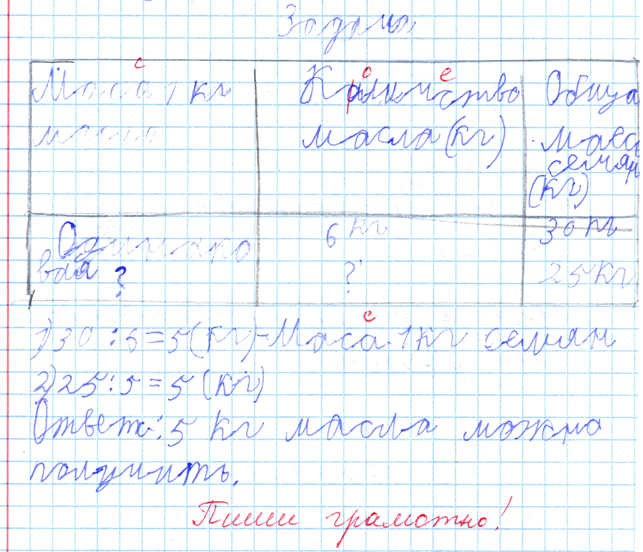 Задача
с
Маса 1 кг
масла
о е
Каличиство
масла (кг)
Обща
масс
семян
(кг)
Одинако
вая ?
6 кг
?
30 кг
25 кг
с
1) 30 : 6 = 5 (кг) - Маса 1 кг семян
2) 25 : 5 = 5 (кг)
Ответ: 5 кг масла можно
получить.
Пиши грамотно!